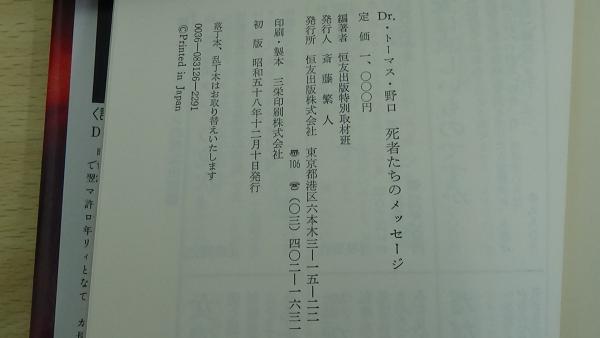 Dr.トーマス・野口 死者たちのメッセージ
定 価 一、〇〇〇円
編著者 恒友出版特別取材班
発行人 斎 藤 繁 人
発行所 恒友出版株式会社
東京都港区六本木三―一五―二二
〠 106 ☎ (〇三) 四〇二―一六三一
印刷・製本 三栄印刷株式会社
初 版 昭和五十八年十二月十日発行
落丁本、乱丁本はお取り替えいたします
0036―083126―2291
©Printed in Japan